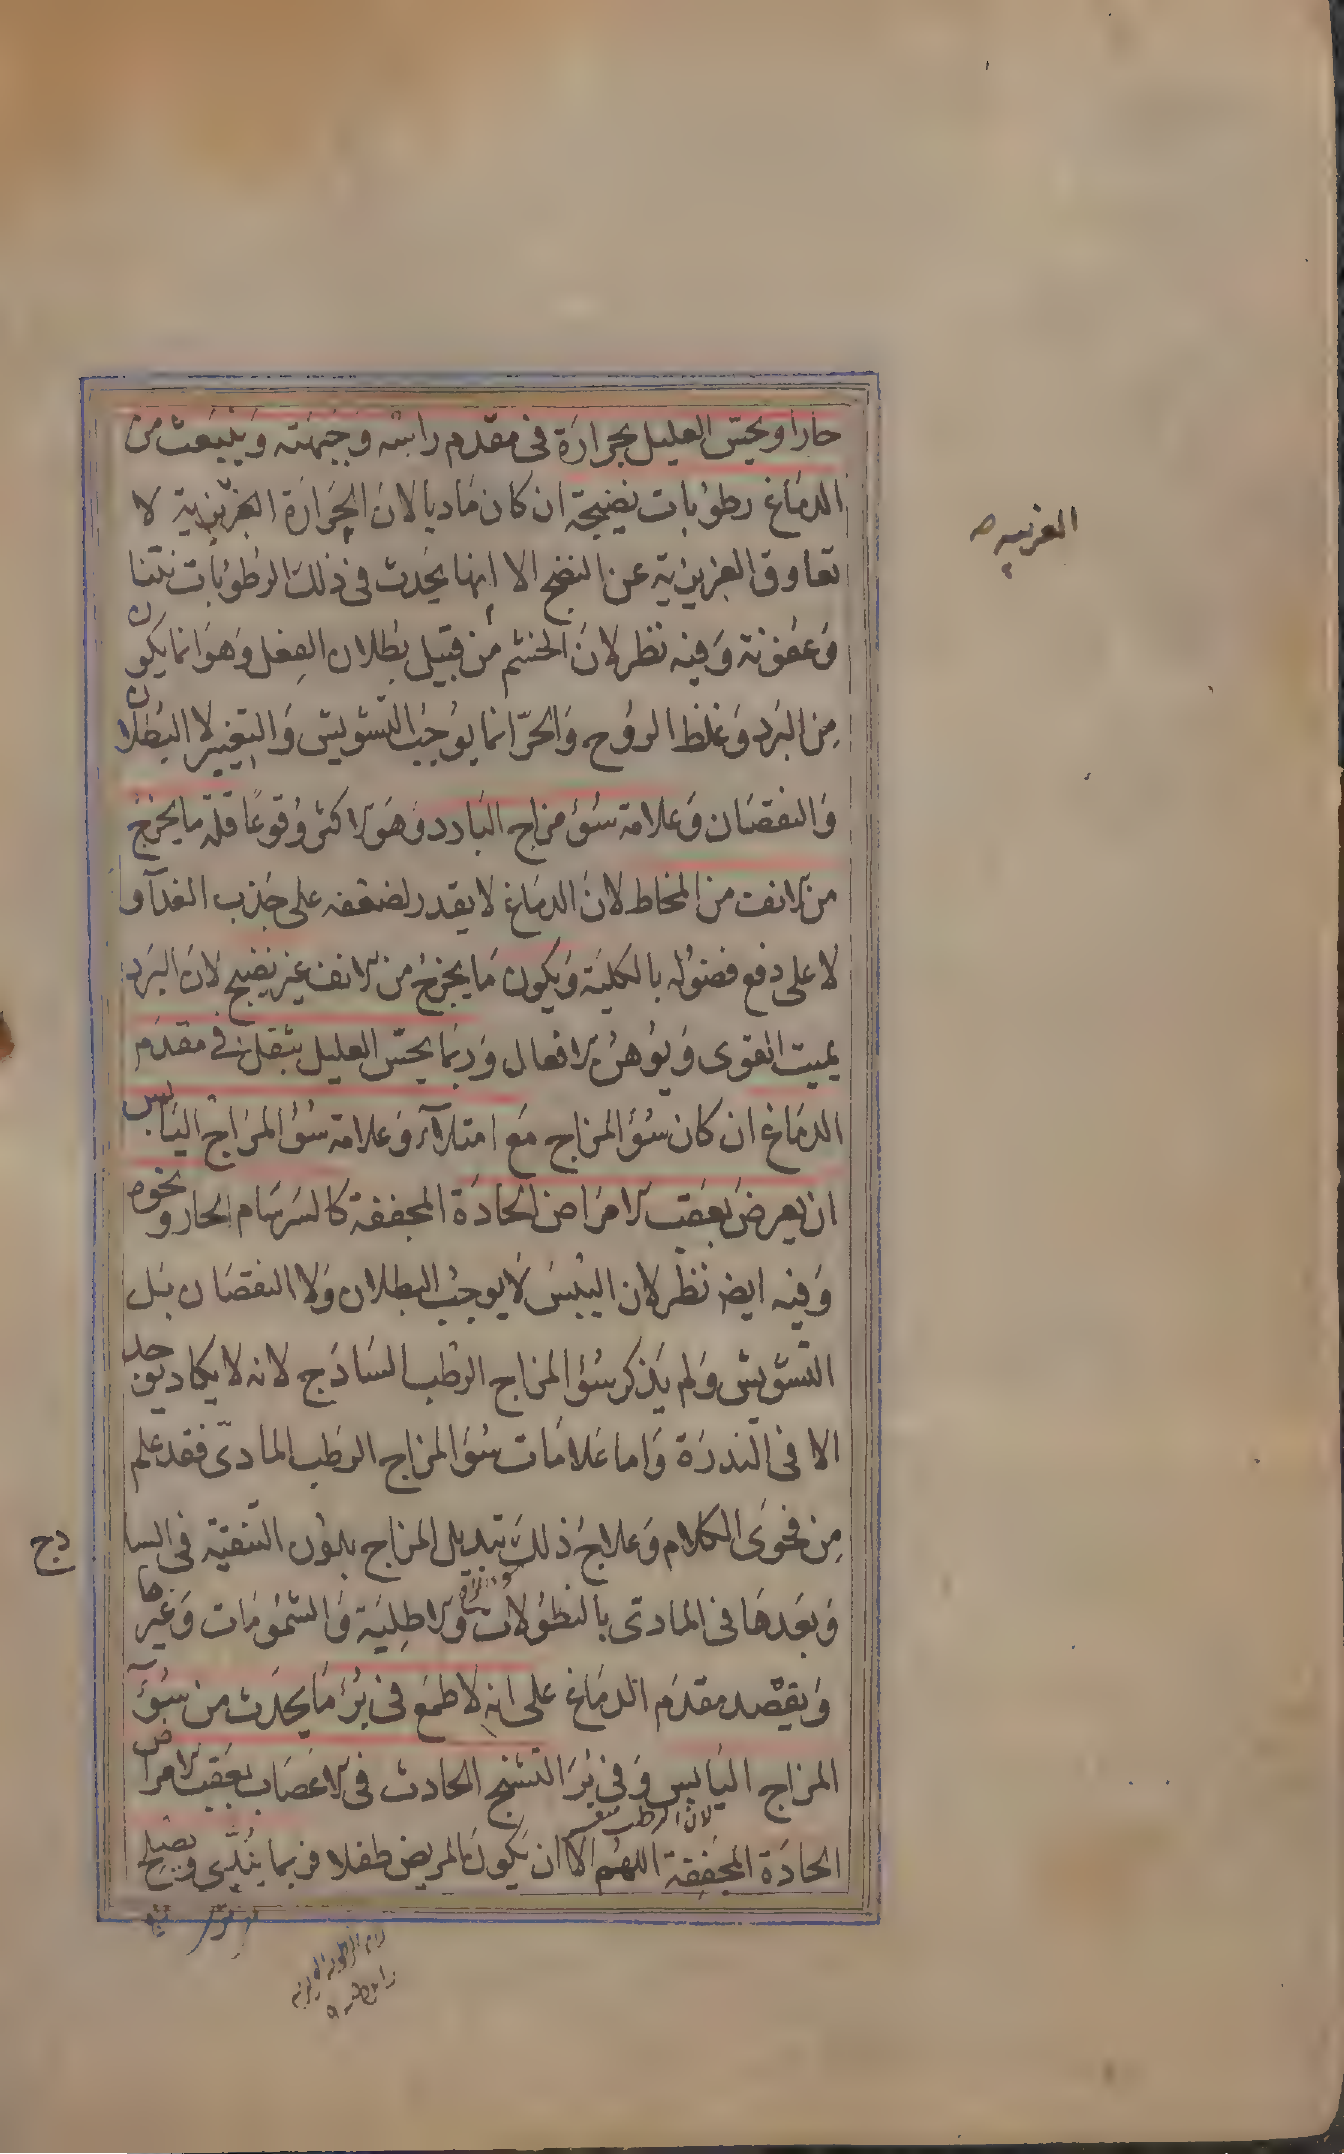 حارا ويحسّ العليل بحرارة فى مقدم راسه وجبهته وينبعث من
الدماغ رطوبات نضيجة ان كان ماديا لان الحرارة الغريزية لا
الغريبه
تعاوق الغريزية عن النضج الا انها يحدث فى ذلك الرطوبات نتنا
وعفونة وفيه نظر لان الخشم من قبيل بطلان الفعل وهو انما يكون
من البرد وغلظ الروح والحرّ انما يوجب التشويش والتغيير لا البطلان
والنقصان وعلامة سوء مزاج البارد وهو الاكثر وقوعًا قلة ما يخرج
من الانف من المخاط لان الدماغ لا يقدر لضعفه على جذب الغدآ و
لا على دفع فضوله بالكلية ويكون ما يخرج من الانف غير نضيج لان البرد
يميت القوى ويوهن الافعال وربما يحسّ العليل بثقل فى مقدم
الدماغ ان كان سوء المزاج مع امتلآء وعلامة سوء المزاج اليابس
ان يعرض بعقب الامراض الحادة المجففة كالسرسام الحار ونحوه
وفيه ايضا نظر لان اليبس لا يوجب البطلان ولا النقصان بل
التشويش ولم يذكر سوء المزاج الرطب الساذج لانه لا يكاد يوجد
الا فى الندرة واما علامات سوء المزاج الرطب المادىّ فقد علم
من فحوى الكلام وعلاج ذلك تبديل المزاج بدون التنقية فى السا دج
وبعدها فى المادى بالنطولات والاطلية والشمومات وغيرها
ويقصد مقدم الدماغ على انه لا طمع فى برء ما يحدث من سوء
المزاج اليابس وفى برء التشنج الحادث فى الاعصاب بعقب الامراض
الحادة المجففة اللهم الا ان يكون المريض طفلا فربما